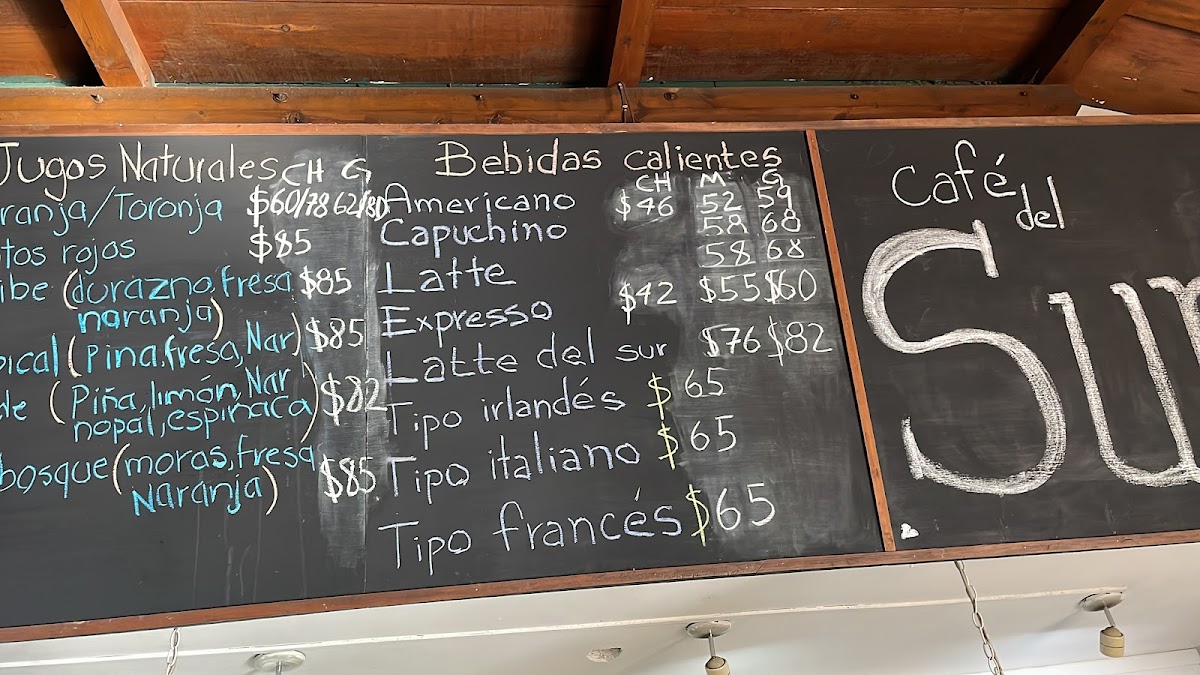 Jugos Naturales CH G
ranja/Toronja $60/78 62/80
tos rojos $85
ibe (durazno, fresa $85
naranja)
pical (Pina, fresa, Nar) $85
de (Piña, limón, Nar $82
nopal, espinaca)
bosque (moras, fresa $85
Naranja)
Bebidas calientes
CH M. G
Americano $46 52 59
Capuchino 58 68
Latte 58 68
Expresso $42 $55 $60
Latte del sur $76 $82
Tipo irlandés $65
Tipo italiano $65
Tipo francés $65
Café
del
Sur